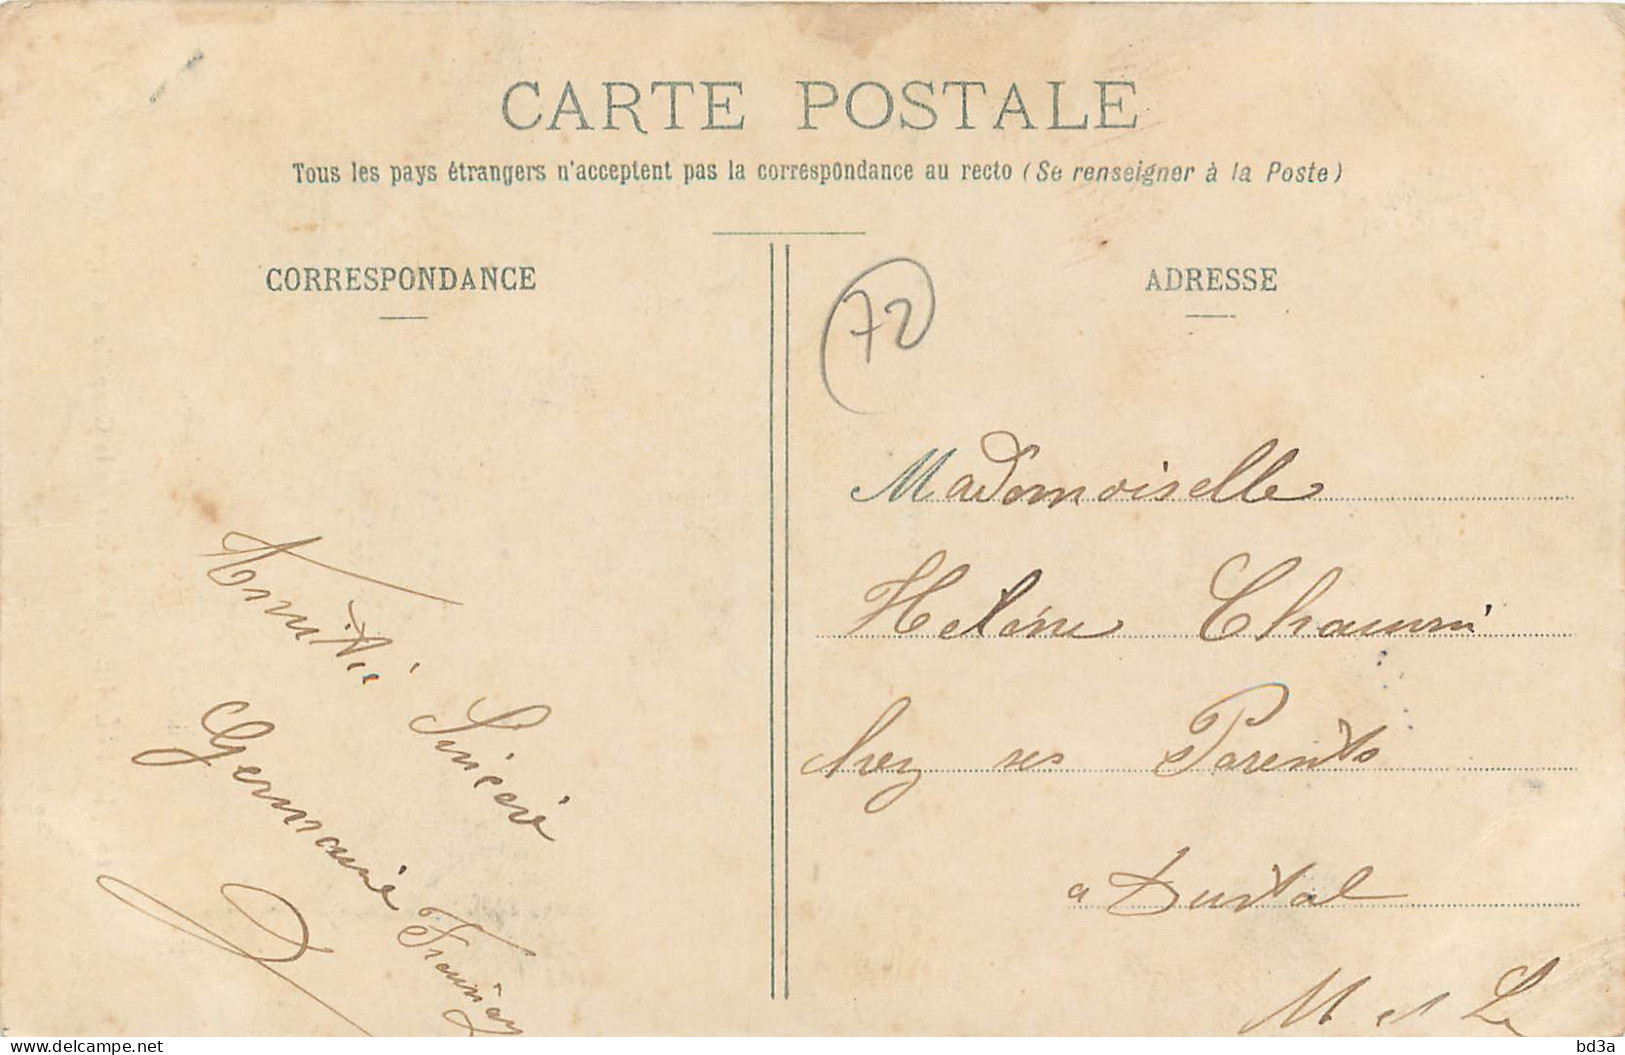 CARTE POSTALE
Tous les pays étrangers n'acceptent pas la correspondance au recto (Se renseigner à la Poste)
CORRESPONDANCE
Amitié Sincère
Germaine
ADRESSE
72
Mademoiselle
Helène
chez ses Parents
a Durtal
M et L
bd3a